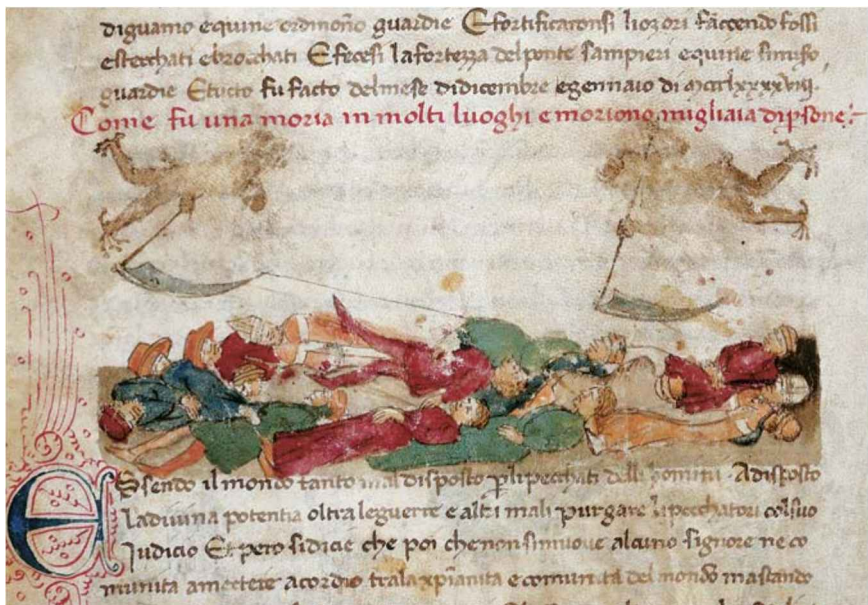 diguamo equine ordinoño guardie Efortificaronsi liozori faccendo fossi
estecchati ebrocchati Efecesi lafortezza delponte sampieri equine simiſo
guardie Etucto fu facto delmese didicembre egennaio di mccclxxxxviij.
Come fu una moria in molti luoghi e morirono migliaia dipsone:
Essendo il mondo tanto mal disposto p lipecchati delli homini. Adisposto
Ladiuina potentia oltra leguerre e altri mali purgare lipecchatori colsuo
Judicio Et pero sidicie che poi chenonsimuoue alcuno signore ne co
munita amectere acordio tralaxpianita e comunita del mondo mastando